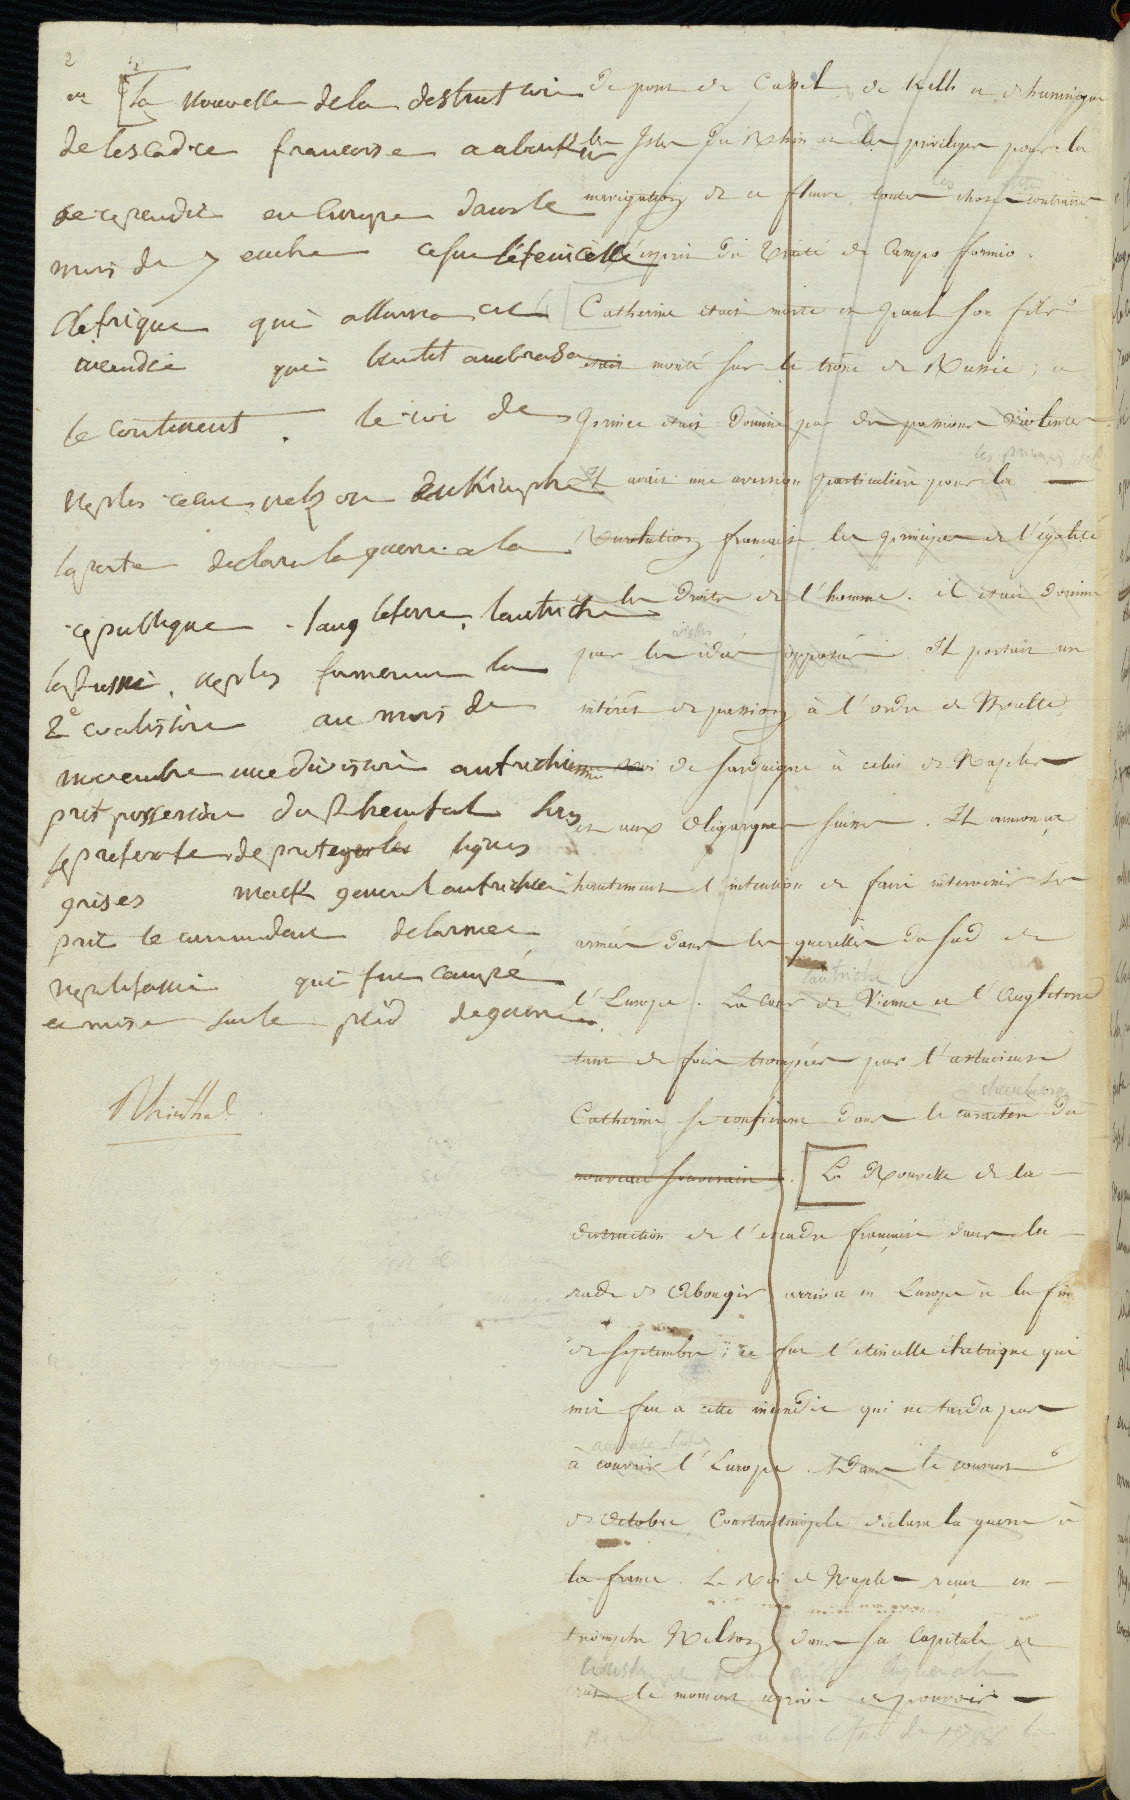 2
la nouvelle de la destruction
de lescadre francoise a aboukir
se rependit en Europe dans le
mois de 7 embre ce fut létincelle
életrique qui alluma cet
incendie qui bientot embrasa
le continent. le roi de
naples recut nelson en triomphe
la porte declara la guerre a la
republique. langleterre, lautriche
la russie, naples formerent la
2e coalistion au mois de
novembre une division autrichienne
prit possession du Rheintal sous
le pretexte de proteger les lignes
grises mack general autrichien
prit le commandent de larmee
napolitaine qui fut campé
et mise sur le pied de guerre
Rhinthal
de pont de Cassel, de Kelh et d'huningue
les Isles du Rhin et les privileges pour la
navigation de ce fleuve, toutes choses contraires
à l'esprit du traité de Campo formio.
Catherine étoit morte et paul son fils
étoit monté sur le trône de Russie; ce
prince étoit dominé par des passions violentes
les principes de la
Il avait une aversion particulière pour la
Revolution française, les principes de l'égalité
et les droits de l'homme. il étoit dominé
par les idées opposées. Il portait un
intérêt de passion à l'ordre de Malte,
au Roi de Sardaigne à celui de Naples
et aux Oligarques suisses. Il annonça
hautement l'intention de faire intervenir ses
armées dans les querelles du sud de
l'autriche
l'Europe. La Cour de Vienne et l'Angleterre
tant de fois trompées par l'astucieuse
Catherine se confièrent dans le caractere du
nouveau souverain. La Nouvelle de la
destruction de l'escadre française dans la
rade d'Abougir arriva en Europe à la fin
de septembre; ce fut l'étincelle électrique qui
mit feu a cette incendie qui ne tarda pas
à couvrir l'Europe. Dans le courant
d'octobre, Constantinople déclara la guerre à
la france. Le Roi de Naples reçut en
triomphe Nelson dans sa Capitale et
crut le moment arrivé de pouvoir